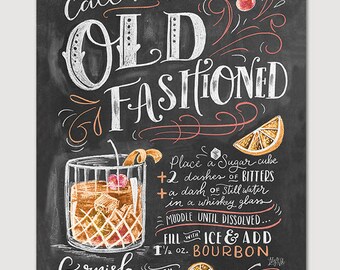 Call me
OLD
FASHIONED
Place a Sugar cube
+ 2 dashes of BITTERS
+ a dash of Still water
in a whiskey glass
MUDDLE UNTIL DISSOLVED...
FILL WITH ICE & ADD
1 1/2 oz. BOURBON
Garnish